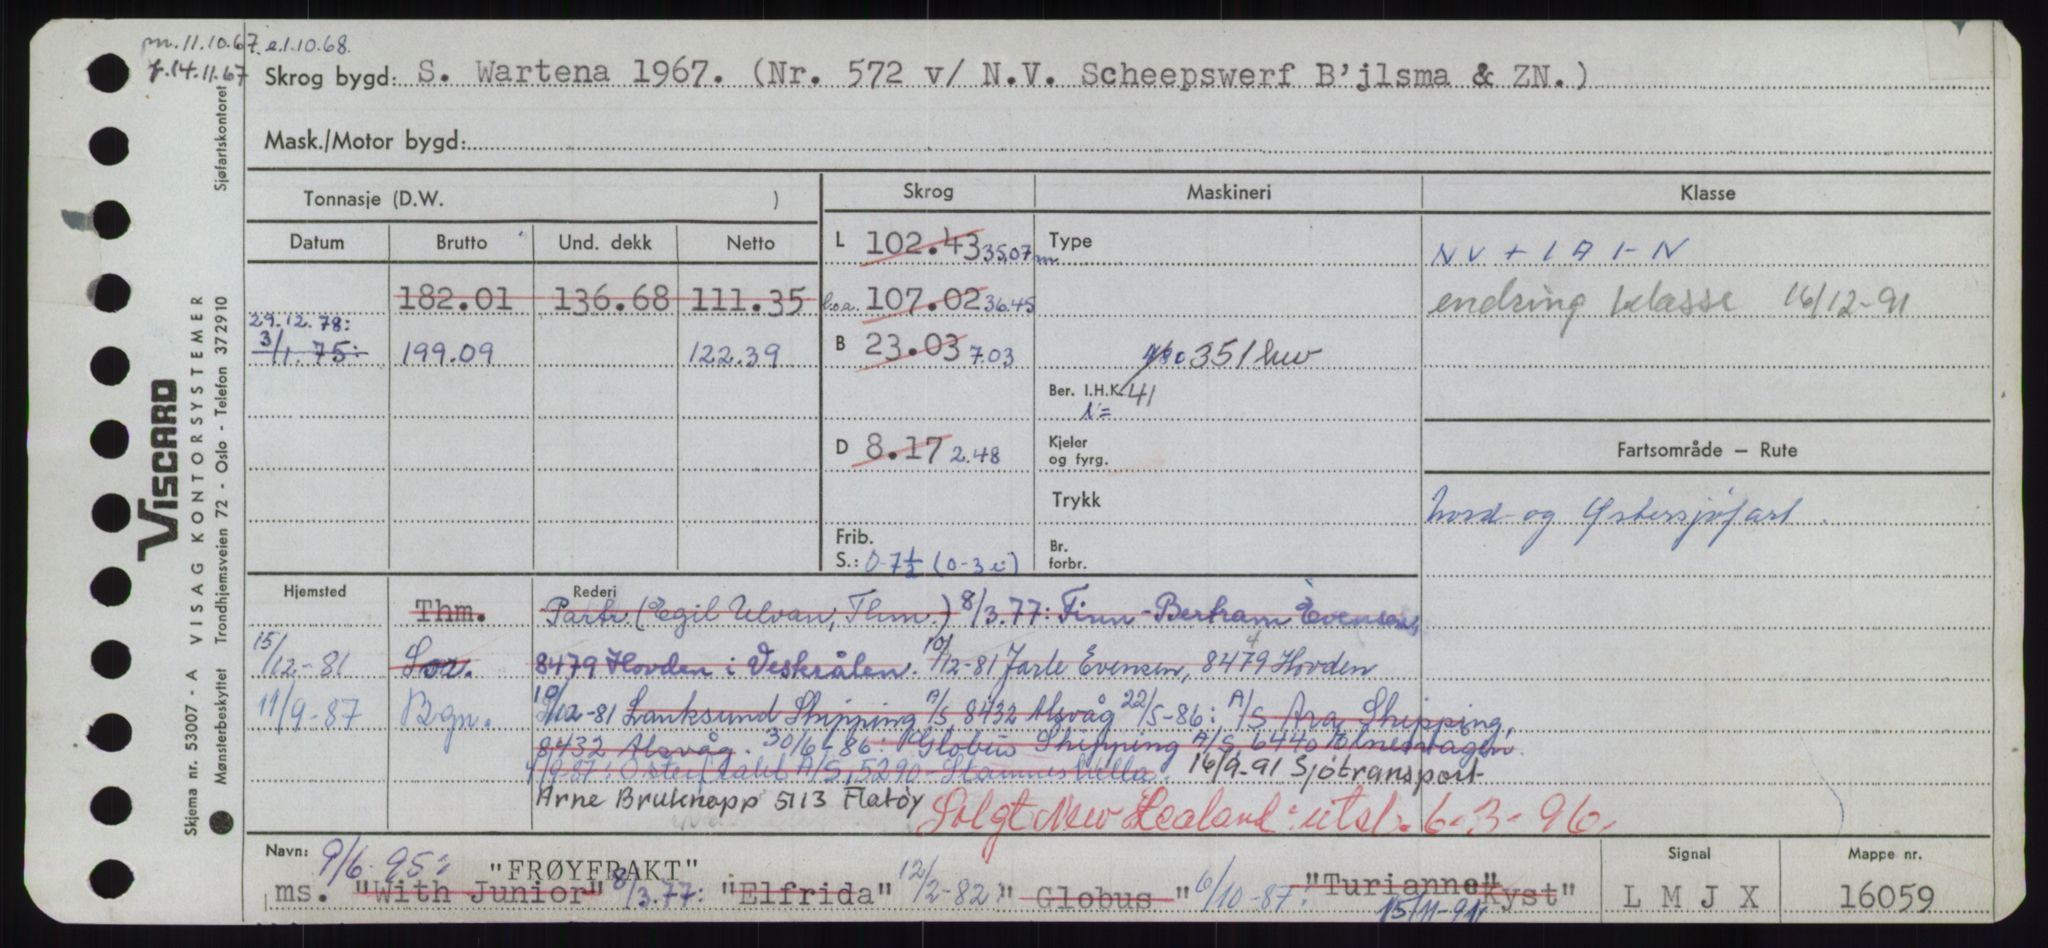 m. 11.10.67. e.1.10.68.
f.14.11.67
Skrog bygd: S. Wartena 1967. (Nr. 572 v/ N.V. Scheepswerf B'jlsma & ZN.)
Mask./Motor bygd:
Tonnasje (D.W. )
Skrog
Maskineri
Klasse
Datum Brutto Und. dekk Netto
L 102.43 35.07 m
Type
NV + 1 A 1 - N
182.01 136.68 111.35
l.o.a. 107.02 36.45
endring klasse 16/12-91
29.12.78:
3/1.75: 199.09 122.39
B 23.03 7.03
351 hw
Ber. I.H.K. 41
N=
D 8.17 2.48
Kjeler
og fyrg.
Fartsområde – Rute
Trykk
Nord- og Østersjøfart.
Frib.
S.: 0-7½ (0-3 i)
Br.
forbr.
Hjemsted
Rederi
Thm. Partr. (Egil Ulvan, Thm.) 8/3.77: Finn-Bertram Evensen,
15/12-81 Sor. 8479 Hovden i Vesterålen. 10/12-81 Jarle Evensen, 8479 Hovden
11/9-87 Bgn. 10/12-81 Lanksund Shipping A/S 8432 Alsvåg 22/5-86: A/S Ara Shipping,
8432 Alsvåg. 30/6-86: Globus Shipping A/S, 6440 Elnesvågen.
4/9-87: Osterfrakt A/S, 5290-Stamneshella. 16/9-91 Sjøtransport
Arne Bruknapp 5113 Flatøy Solgt New Zealand: utsl. 6-3-96.
Navn: 9/6-95: "FRØYFRAKT"
ms. "With Junior" 8/3.77: "Elfrida" 12/2-82: "Globus" 6/10-87: "Turianne" Kyst"
15/11-91
Signal
L M J X
Mappe nr.
16059
VISCARD
VISAG KONTORSYSTEMER
Skjema nr. 53007 - A
Mønsterbeskyttet
Trondhjemsveien 72 - Oslo - Telefon 372910
Sjøfartskontoret